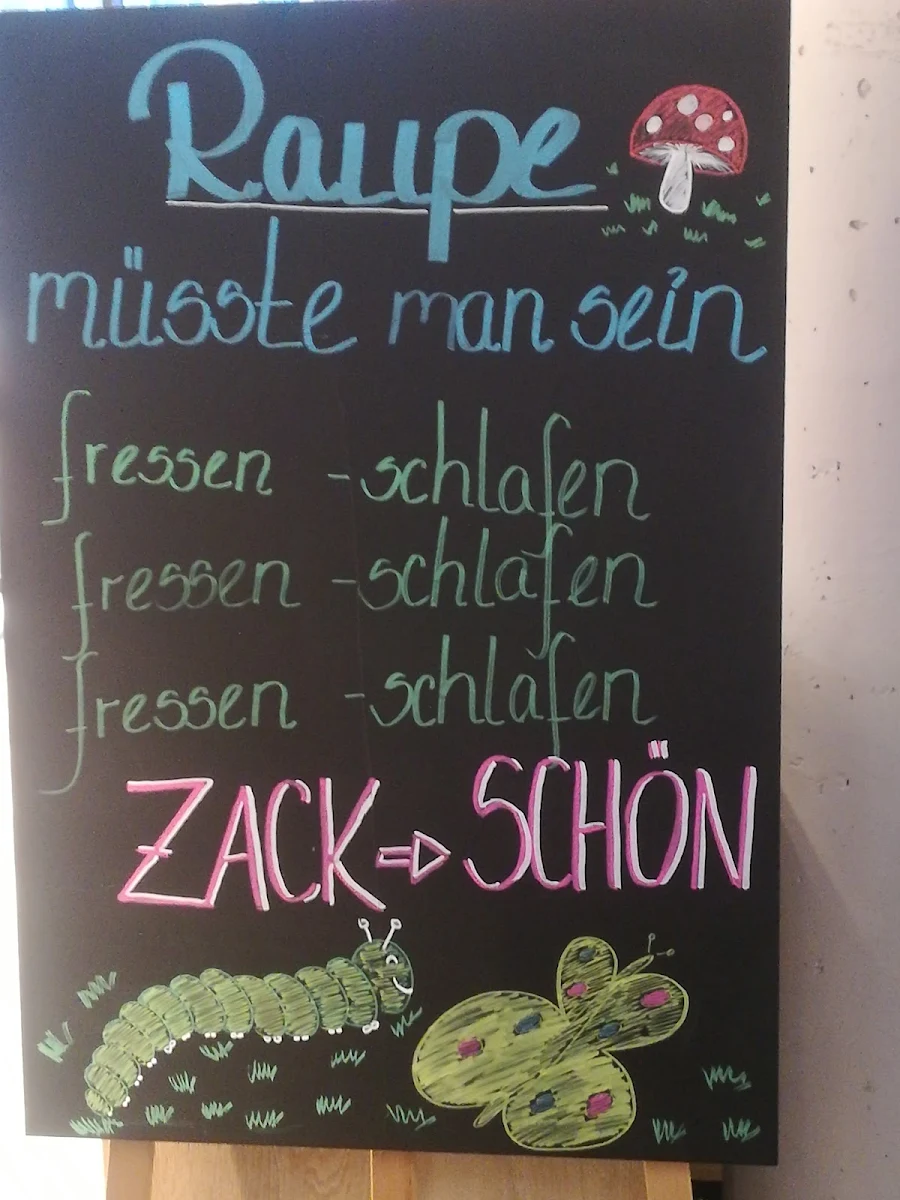 Raupe
müsste man sein
fressen - schlafen
fressen - schlafen
fressen - schlafen
ZACK ⇨ SCHÖN